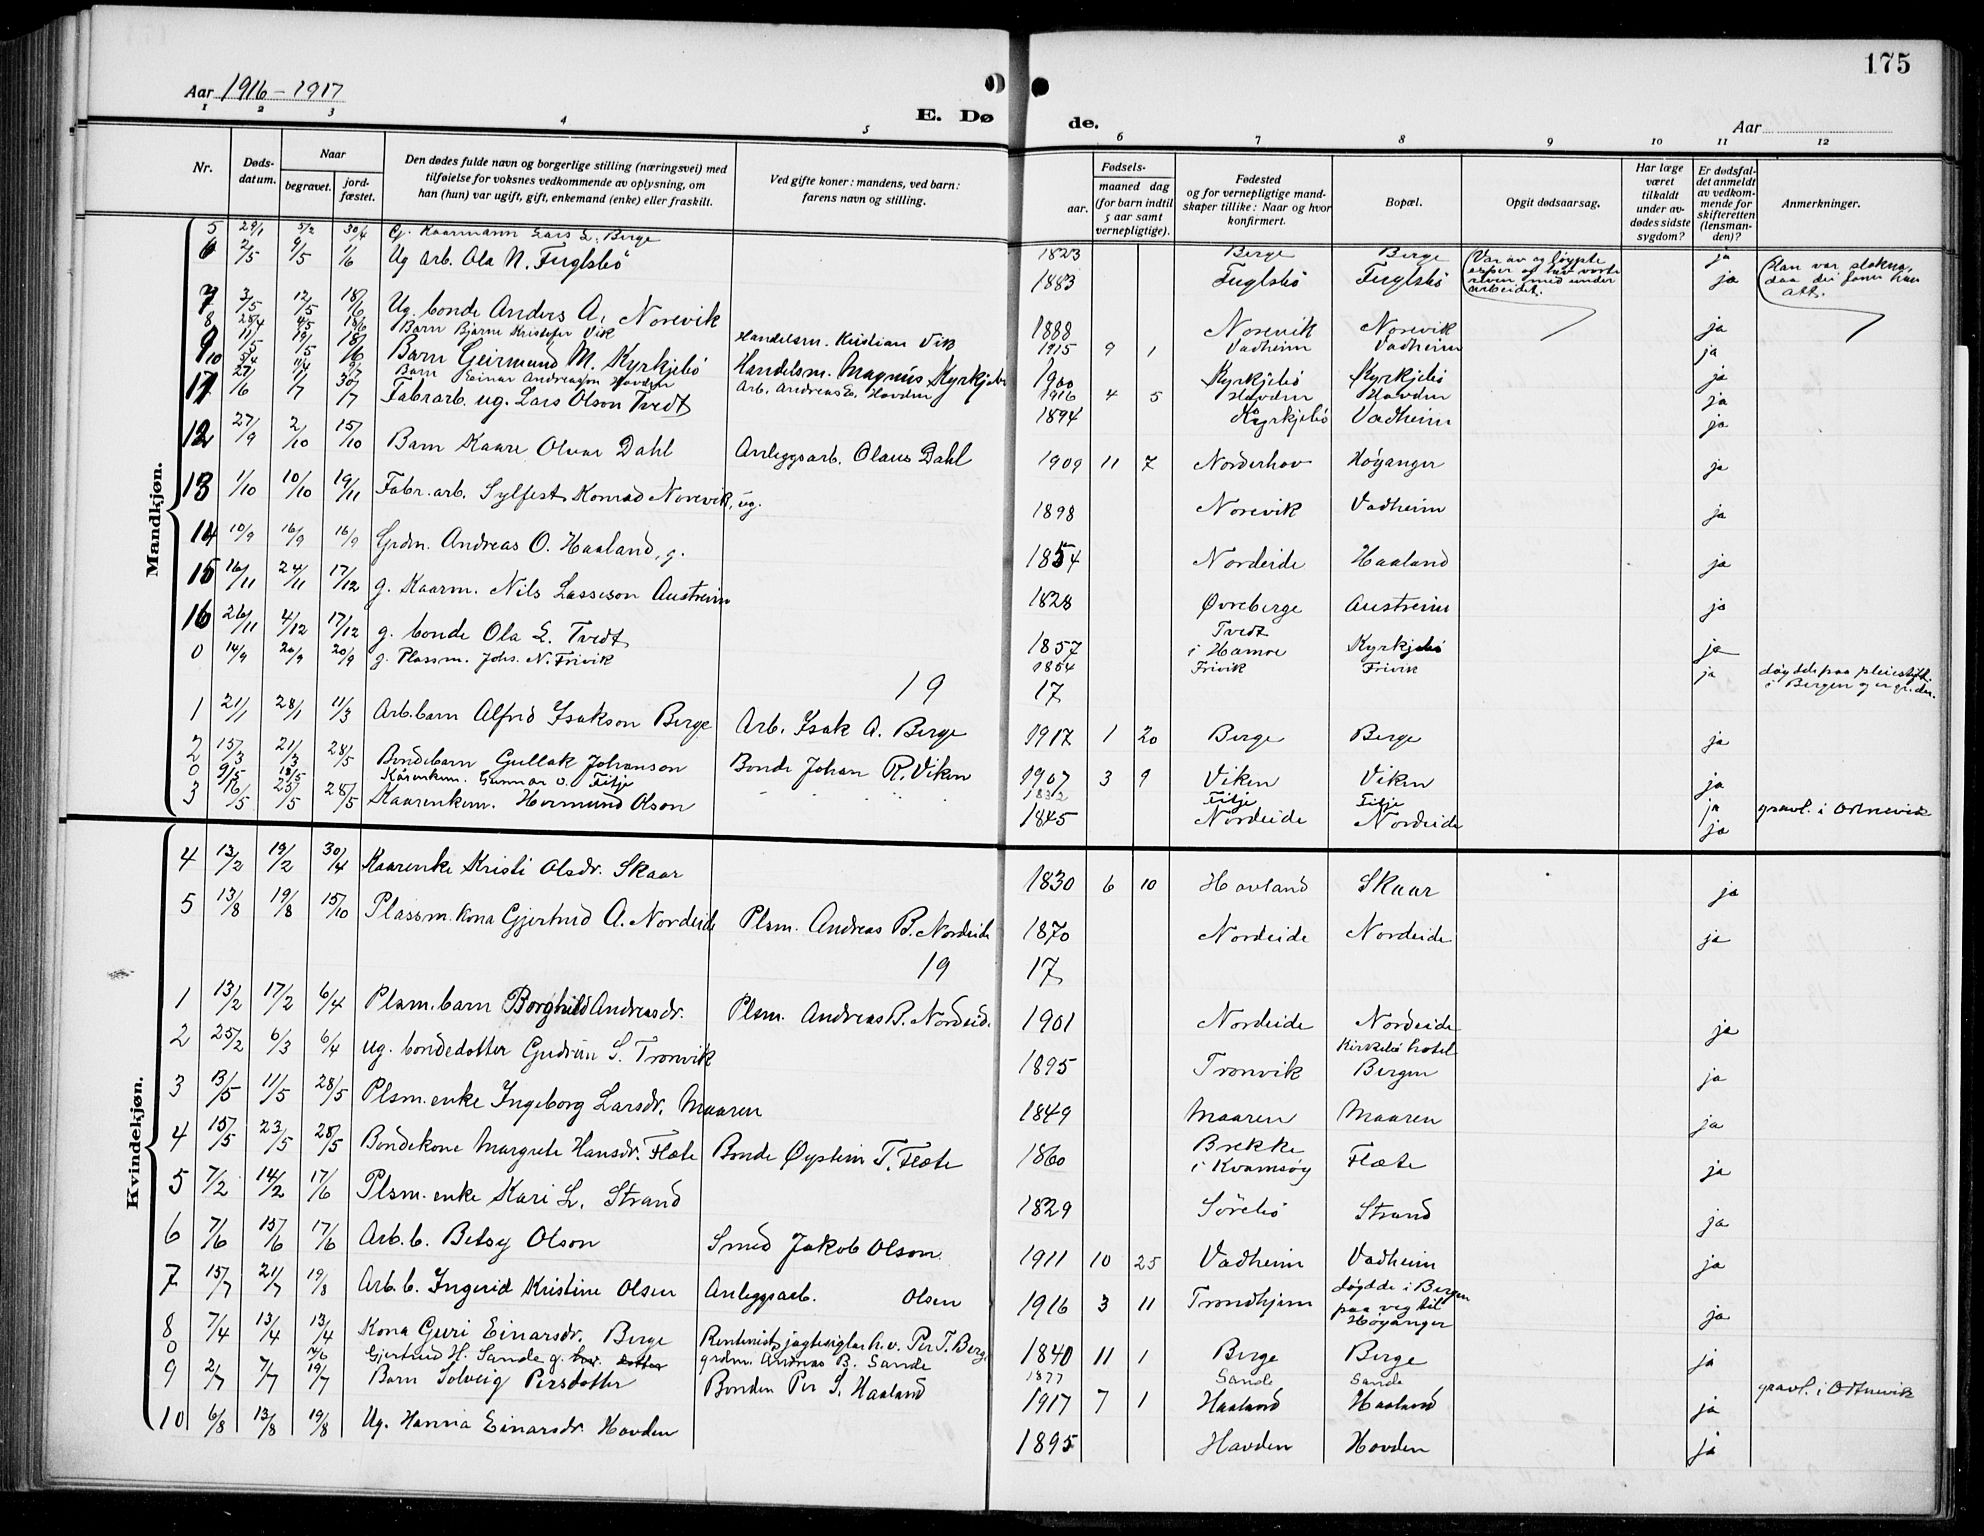 175
Aar 1916 – 1917
E. Dø de.
Aar
1 2 3 4 5 6 7 8 9 10 11 12
Nr. Døds-datum. Naar begravet. jord-fæstet. Den dødes fulde navn og borgerlige stilling (næringsvei) med tilføielse for voksnes vedkommende av oplysning, om han (hun) var ugift, gift, enkemand (enke) eller fraskilt. Ved gifte koner: mandens, ved barn: farens navn og stilling. Fødsels- aar. maaned dag (for barn indtil 5 aar samt vernepligtige). Fødested og for vernepligtige mandskaper tillike: Naar og hvor konfirmert. Bopæl. Opgit dødsaarsag. Har læge været tilkaldt under avdødes sidste sygdom? Er dødsfaldet anmeldt av vedkommende for skifteretten (lensmanden)? Anmerkninger.
Mandkjøn.
5 29/1 5/2 30/4 G. Kaarmann Lars L. Berge 1823 Berge Berge ja
6 2/5 9/5 1/6 Ug arb. Ola N. Fuglsbö 1883 Fuglsbö Fuglsbö ja
7 3/5 12/5 18/6 Ug. bonde Anders A. Norevik 1888 Norevik Norevik ja
8 28/4 4/5 18/6 Barn Bjarne Kristofer Vik Handelsm. Kristian Vik 1915 9 1 Vadheim Vadheim ja
9 11/5 19/5 18/6 Barn Geirmund M. Kyrkjebö Handelsm. Magnus Kyrkjebö 1900 Kyrkjebö Kyrkjebö ja
10 Barn Einar Andreason Hovden Arb. Andreas E. Hovden 1916 4 5 Hovden Hovden ja
11 27/6 1/7 30/7 Fabrarb. ug. Lars Olson Tvedt 1894 Kyrkjebö Vadheim ja
12 27/9 2/10 15/10 Barn Kaare Olvar Dahl Anleggsarb. Olaus Dahl 1909 11 7 Norderhov Höyanger ja
13 1/10 10/10 19/11 Fabr.arb. Sylfest Konrad Norevik, ug. 1898 Norevik Vadheim ja
14 10/9 16/9 16/9 Grdm. Andreas O. Haaland, g. 1854 Nordeide Haaland ja
15 16/11 24/11 17/12 g. Kaarm. Nils Lasseson Austreim 1828 Øvreberge Austreim ja
16 26/11 4/12 17/12 g. bonde Ola L. Tvedt 1857 Tvedt i Hamre Kyrkjebö ja
0 14/9 20/9 20/9 g. Plassm. Johs. N. Frivik 1854 Frivik Frivik ja döydde paa pleiestift. i Bergen
19 17
1 21/1 28/1 11/3 Arb.barn Alfrid Isakson Berge Arb. Isak A. Berge 1917 1 20 Berge Berge ja
2 15/3 21/3 28/5 Bondebarn Gullak Johanson Bonde Johan R. Viken 1907 3 9 Viken Viken ja
0 9/5 18/5 Kårenkem. Gunnar O. Fitje 1832 Fitje Fitje ja gravl. i Ortnevik
3 16/5 25/5 28/5 Kaarenkem. Hermund Olson 1845 Nordeide Nordeide ja
Kvindekjøn.
4 13/2 19/2 30/4 Kaarenke Kristi Olsdr. Skaar 1830 6 10 Hovland Skaar ja
5 13/8 19/8 15/10 Plassm. kona Gjertrud A. Nordeide Plsm. Andreas B. Nordeide 1870 Nordeide Nordeide ja
19 17
1 13/2 17/2 6/4 Plsm. barn Borghild Andreasdr. Plsm. Andreas B. Nordeid. 1901 Nordeide Nordeide ja
2 25/2 6/3 6/4 Ug. bondedotter Gudrun S. Tronvik 1895 Tronvik Kirkebö hotel Bergen ja
3 13/5 11/5 28/5 Plsm. enke Ingeborg Larsdr. Maaren 1849 Maaren Maaren ja
4 15/5 23/5 28/5 Bondekone Margrete Hansdr. Flæte Bonde Øystein T. Flæte 1860 Brekke i Kvamsöy Flæte ja
5 7/2 14/2 17/6 Plsm. enke Kari L. Strand 1829 Sörebö Strand ja
6 7/6 15/6 17/6 Arb. b. Betsy Olson Smed Jakob Olson 1911 10 25 Vadheim Vadheim ja
7 15/7 21/7 19/8 Arb. b. Ingerid Kristine Olsen Anleggsarb. Olsen 1916 3 11 Trondhjem döydde i Bergen paa veg til Höyanger ja
8 7/4 13/4 13/4 Kona Guri Einarsdr. Berge Rentenist, Per T. Berge 1840 11 1 Berge Berge ja
0 Gjertrud H. Sande g. grdm. Andreas B. Sande 1877 Sande Sande gravl. i Ortnevik
9 2/7 7/7 19/7 Barn Solveig Persdotter Bonden Per S. Haaland 1917 7 1 Haaland Haaland ja
10 6/8 13/8 19/8 Ug. Hanna Einarsdr. Hovden 1895 Hovden Hovden ja